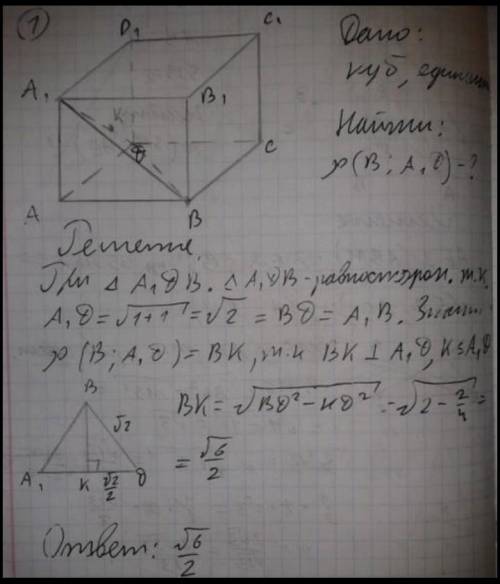 1
D₁
C₁
A₁
B₁
K
D
C
A
B
Дано:
куб,
Найти:
ρ(B; A₁D)-?
Решение.
При Δ A₁DB. Δ A₁DB - равносторон. т.к.
A₁D = √1+1 = √2 = BD = A₁B.
ρ(B; A₁D) = BK, т.к BK ⊥ A₁D, K ∈ A₁D
BK = √BD² - KD² = √2 - 2/4 =
= √6/2
B
√2
A₁ K √2/2 D
Ответ: √6/2